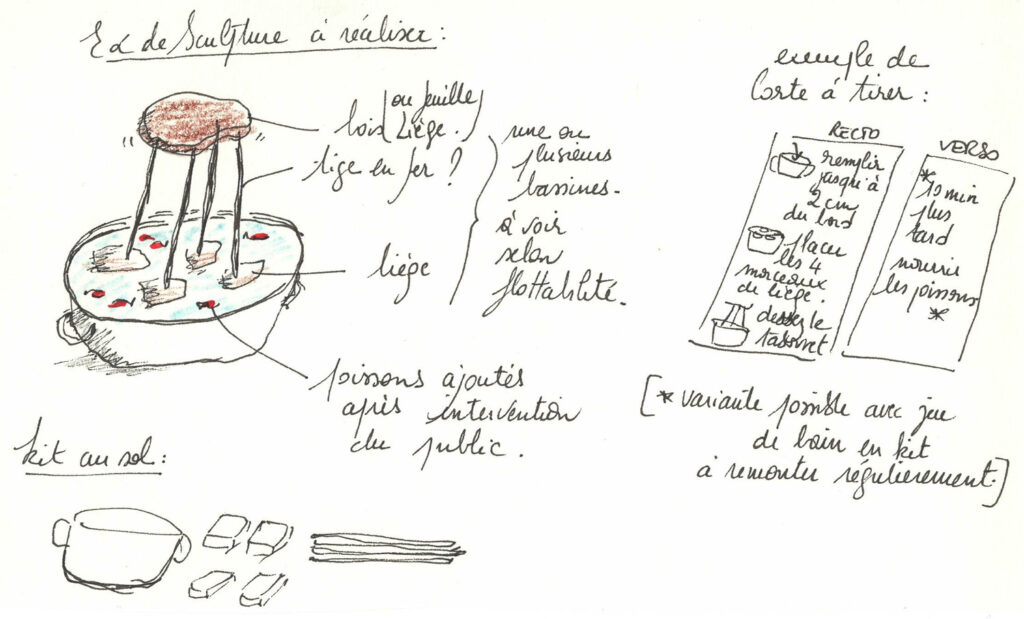 Ex de Sculpture à réaliser :
bois (ou feuille
Liège.)
tige en fer ?
liège
une ou
plusieurs
bassines -
à voir
selon
flottabilité.
poissons ajoutés
après intervention
du public.
kit au sol :
exemple de
Carte à tirer :
RECTO
remplir
jusqu'à
2 cm
du bord
placer
les 4
morceaux
de liège.
le
tabouret
VERSO
*
10 min
plus
tard
nourrir
les poissons
*
[* variante possible avec jeu
de bain en kit
à remonter régulièrement.]